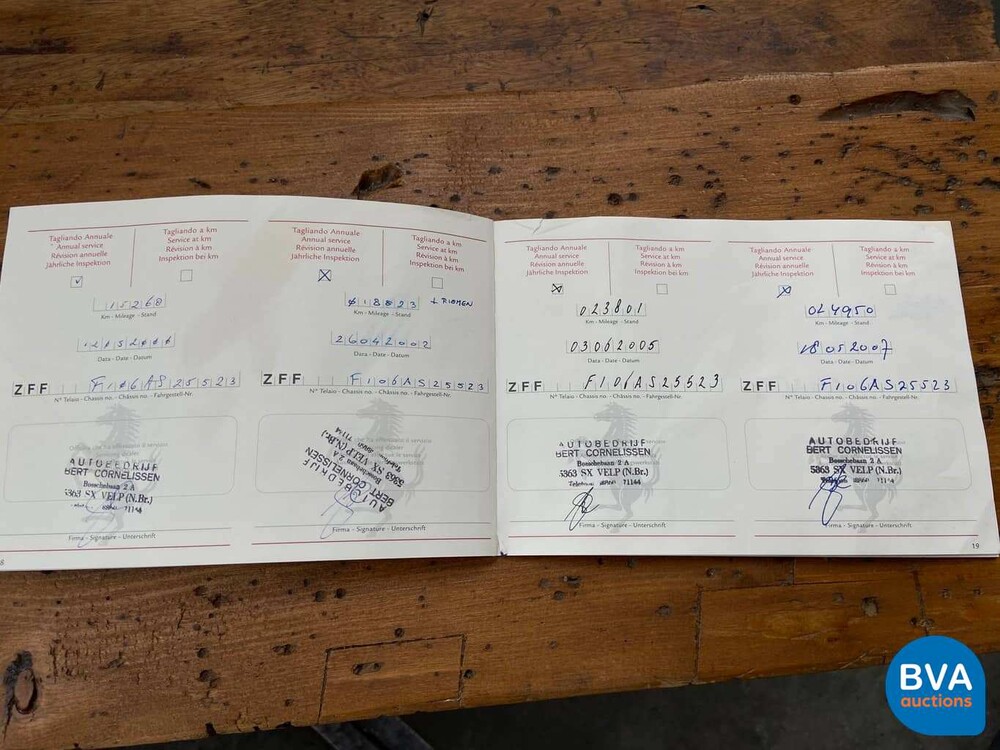 Tagliando Annuale
Annual service
Révision annuelle
Jährliche Inspektion
Tagliando a km
Service at km
Révision à km
Inspektion bei km
15268
Km - Mileage - Stand
Data - Date - Datum
ZFF F106AS25523
N° Telaio - Chassis no. - Châssis no. - Fahrgestell-Nr.
AUTOBEDRIJF
BERT CORNELISSEN
Bosschebaan 2 A
5363 SX VELP (N.Br.)
71144
Firma - Signature - Unterschrift
Tagliando Annuale
Annual service
Révision annuelle
Jährliche Inspektion
Tagliando a km
Service at km
Révision à km
Inspektion bei km
018823 + RIEMEN
Km - Mileage - Stand
26042002
Data - Date - Datum
ZFF F106AS25523
N° Telaio - Chassis no. - Châssis no. - Fahrgestell-Nr.
AUTOBEDRIJF
BERT CORNELISSEN
Bosschebaan 2 A
5363 SX VELP (N.Br.)
71144
Firma - Signature - Unterschrift
Tagliando Annuale
Annual service
Révision annuelle
Jährliche Inspektion
Tagliando a km
Service at km
Révision à km
Inspektion bei km
023801
Km - Mileage - Stand
03062005
Data - Date - Datum
ZFF F106AS25523
N° Telaio - Chassis no. - Châssis no. - Fahrgestell-Nr.
AUTOBEDRIJF
BERT CORNELISSEN
Bosschebaan 2 A
5363 SX VELP (N.Br.)
71144
Firma - Signature - Unterschrift
Tagliando Annuale
Annual service
Révision annuelle
Jährliche Inspektion
Tagliando a km
Service at km
Révision à km
Inspektion bei km
024950
Km - Mileage - Stand
18052007
Data - Date - Datum
ZFF F106AS25523
N° Telaio - Chassis no. - Châssis no. - Fahrgestell-Nr.
AUTOBEDRIJF
BERT CORNELISSEN
Bosschebaan 2 A
5363 SX VELP (N.Br.)
71144
Firma - Signature - Unterschrift
19
BVA
auctions